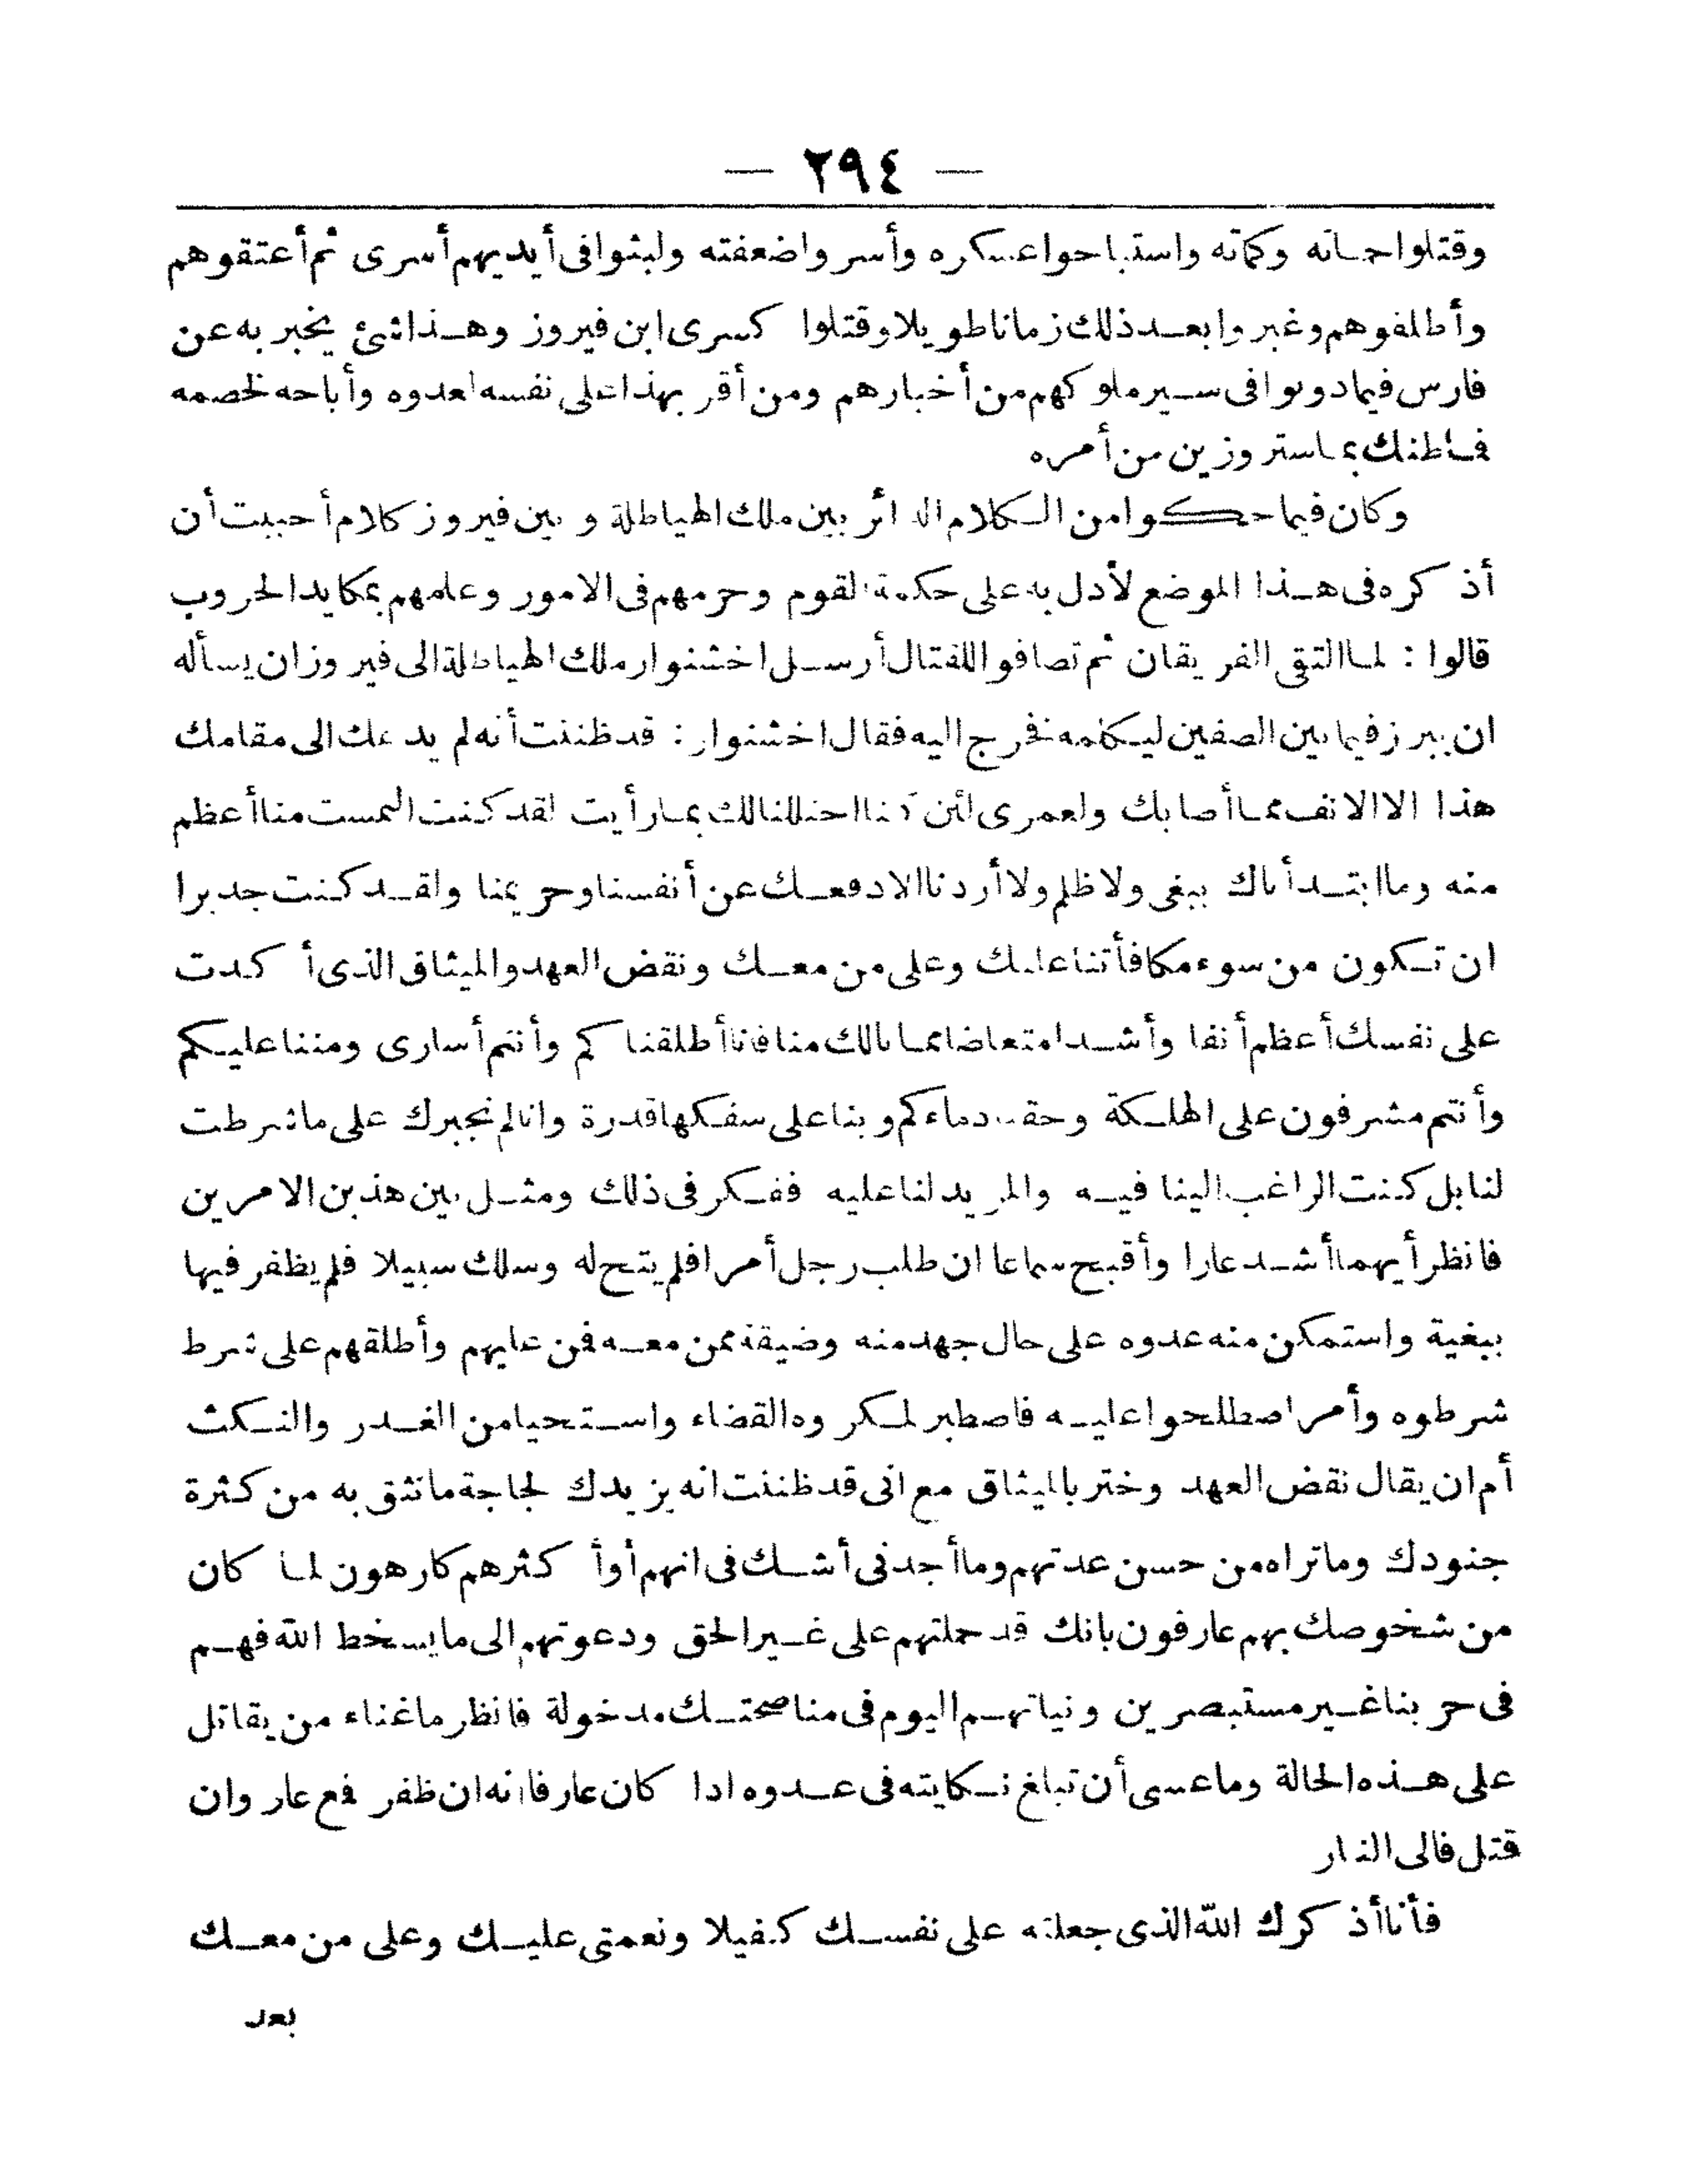 — ٢٩٤ —
وقتلوا حماته وكماته واستباحوا عسكره وأسروا ضعفته ولبثوا فى أيديهم أسرى ثم أعتقوهم
وأطلقوهم وغبروا بعد ذلك زمانا طويلا وقتلوا كسرى ابن فيروز وهذا شئ يخبر به عن
فارس فيما دونوا فى سير ملوكهم من أخبارهم ومن أقر بهذا على نفسه لعدوه وأباحه لخصمه
فما ظنك بما ستروزين من أمره
وكان فيما حكوا من الكلام الدائر بين ملك الهياطلة وبين فيروز كلام أحببت أن
أذكره فى هذا الموضع لأدل به على حكمة القوم وحزمهم فى الامور وعلمهم بمكايد الحروب
قالوا : لما التقى الفريقان ثم تصافوا للقتال أرسل اخشنوار ملك الهياطلة الى فيروز ان يسأله
ان يبرز فيما بين الصفين ليكلمه فخرج اليه فقال اخشنوار : قد ظننت أنه لم يدعك الى مقامك
هذا الا الانف مما أصابك ولعمرى لئن كنا احتلنا لك بما رأيت لقد كنت التمست منا أعظم
منه وما ابتدأناك ببغى ولا ظلم ولا أردنا الا دفعك عن أنفسنا وحريمنا ولقد كنت جديرا
ان تكون من سوء مكافأتنا عليك وعلى من معك ونقض العهد والميثاق الذى أكدت
على نفسك أعظم أنفا وأشد امتعاضا مما نالك منا فانا أطلقناكم وأنتم أسارى ومننا عليكم
وأنتم مشرفون على الهلكة وحقنا دماءكم وبنا على سفكها قدرة وانا لم نجبرك على ما شرطت
لنا بل كنت الراغب الينا فيه والمريد لنا عليه ففكر فى ذلك ومثل بين هذين الامرين
فانظر أيهما أشد عارا وأقبح سماعا ان طلب رجل أمرا فلم يتح له وسلك سبيلا فلم يظفر فيها
ببغية واستمكن منه عدوه على حال جهد منه وضيقة ممن معه فمن عليهم وأطلقهم على شرط
شرطوه وأمر اصطلحوا عليه فاصطبر لمكروه القضاء واستحيا من الغدر والنكث
أم ان يقال نقض العهد وختر بالميثاق مع انى قد ظننت انه يزيدك لجاجة ما تثق به من كثرة
جنودك وما تراه من حسن عدتهم وما أجدنى أشك فى انهم أو أكثرهم كارهون لما كان
من شخوصك بهم عارفون بانك قد حملتهم على غير الحق ودعوتهم الى ما يسخط الله فهم
فى حربنا غير مستبصرين ونياتهم اليوم فى مناصحتك مدخولة فانظر ما غناء من يقاتل
على هذه الحالة وما عسى أن تبلغ نكايته فى عدوه اذا كان عارفا انه ان ظفر فمع عار وان
قتل فالى النار
فأنا أذكرك الله الذى جعلته على نفسك كفيلا ونعمتى عليك وعلى من معك
بعد